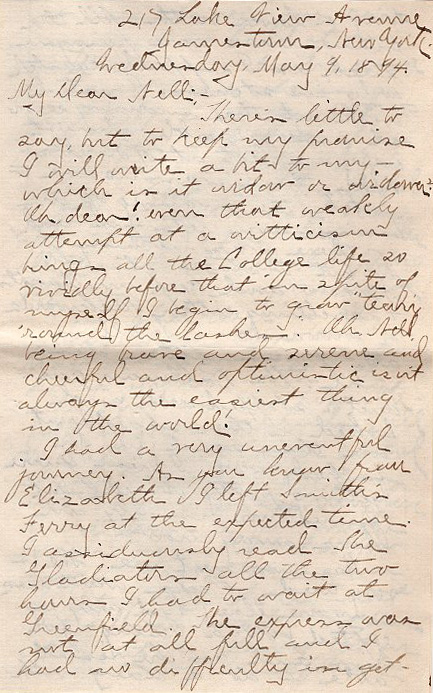 217 Lake View Avenue
Jamestown, New York.
Wednesday, May 9, 1894.
My dear Nell:-
There's little to
say, but to keep my promise
I will write a bit to my -
which is it widow or widower?
Oh, dear! even that weakly
attempt at a witticism
brings all the College life so
vividly before that in spite of
myself I begin to grow "teary
'round the lashes". Oh Nell,
being brave and serene and
cheerful and optimistic isn't
always the easiest thing
in the world!
I had a very uneventful
journey. As you know from
Elizabeth I left Smith's
Ferry at the expected time.
I assiduously read The
Gladiators all the two
hours I had to wait at
Greenfield. The express was
not at all full and I
had no difficulty in get-